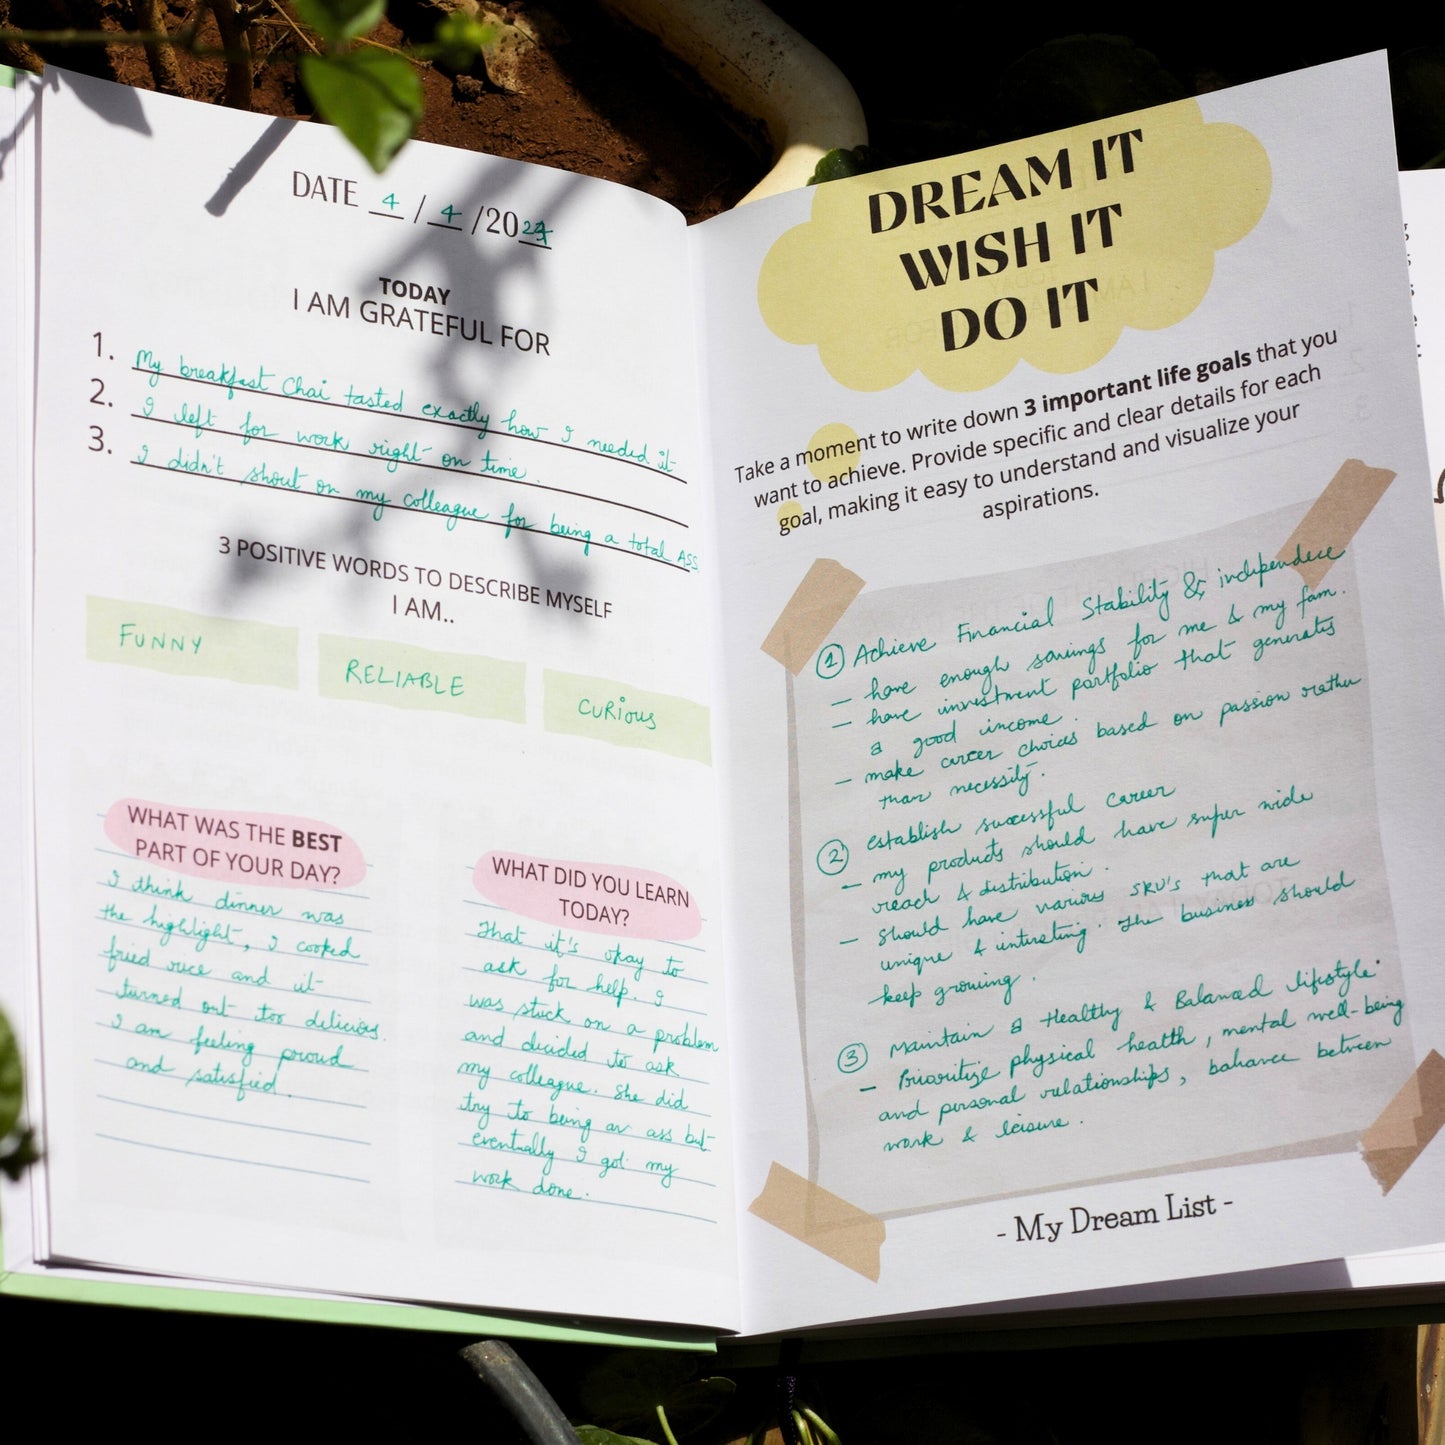 DATE 4 / 4 /2024
TODAY
I AM GRATEFUL FOR
1. My breakfast Chai tasted exactly how I needed it
2. I left for work right on time.
3. I didn't shout on my colleague for being a total ASS.
3 POSITIVE WORDS TO DESCRIBE MYSELF
I AM..
FUNNY
RELIABLE
CURIOUS
WHAT WAS THE BEST
PART OF YOUR DAY?
I think dinner was
the highlight, I cooked
fried rice and it
turned out too delicious.
I am feeling proud
and satisfied.
WHAT DID YOU LEARN
TODAY?
That it's okay to
ask for help. I
was stuck on a problem
and decided to ask
my colleague. She did
try to being an ass but
eventually I got my
work done.
DREAM IT
WISH IT
DO IT
Take a moment to write down 3 important life goals that you
want to achieve. Provide specific and clear details for each
goal, making it easy to understand and visualize your
aspirations.
1 Achieve Financial Stability & independece
- have enough savings for me & my fam.
- have investment portfolio that generates
a good income.
- make career choices based on passion rather
than necessity.
2 establish successful career
- my products should have super wide
reach & distribution.
- should have various SKU's that are
unique & intersting. The business should
keep growing.
3 Maintain a Healthy & Balanced lifestyle.
- Prioritize physical health, mental well-being
and personal relationships, balance between
work & leisure.
- My Dream List -